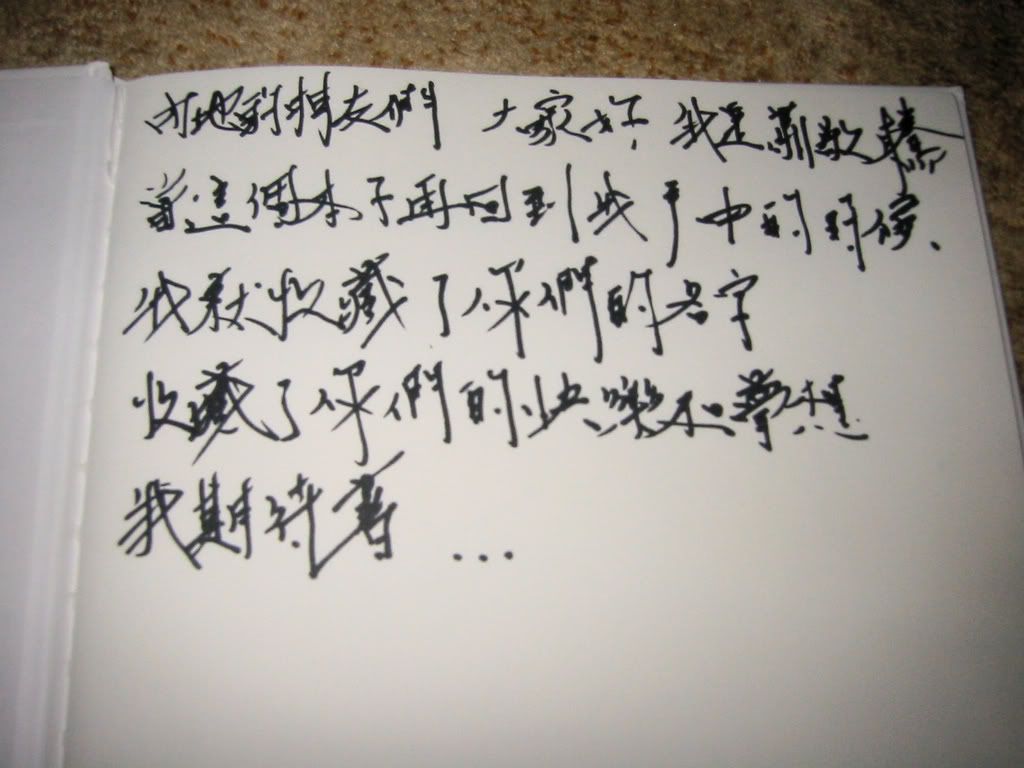 內地的朋友們 大家好 我是蕭敬騰
當這個本子再回到我手中的時候、
我就收藏了你們的名字
收藏了你們的快樂和夢想
我期待著 ...